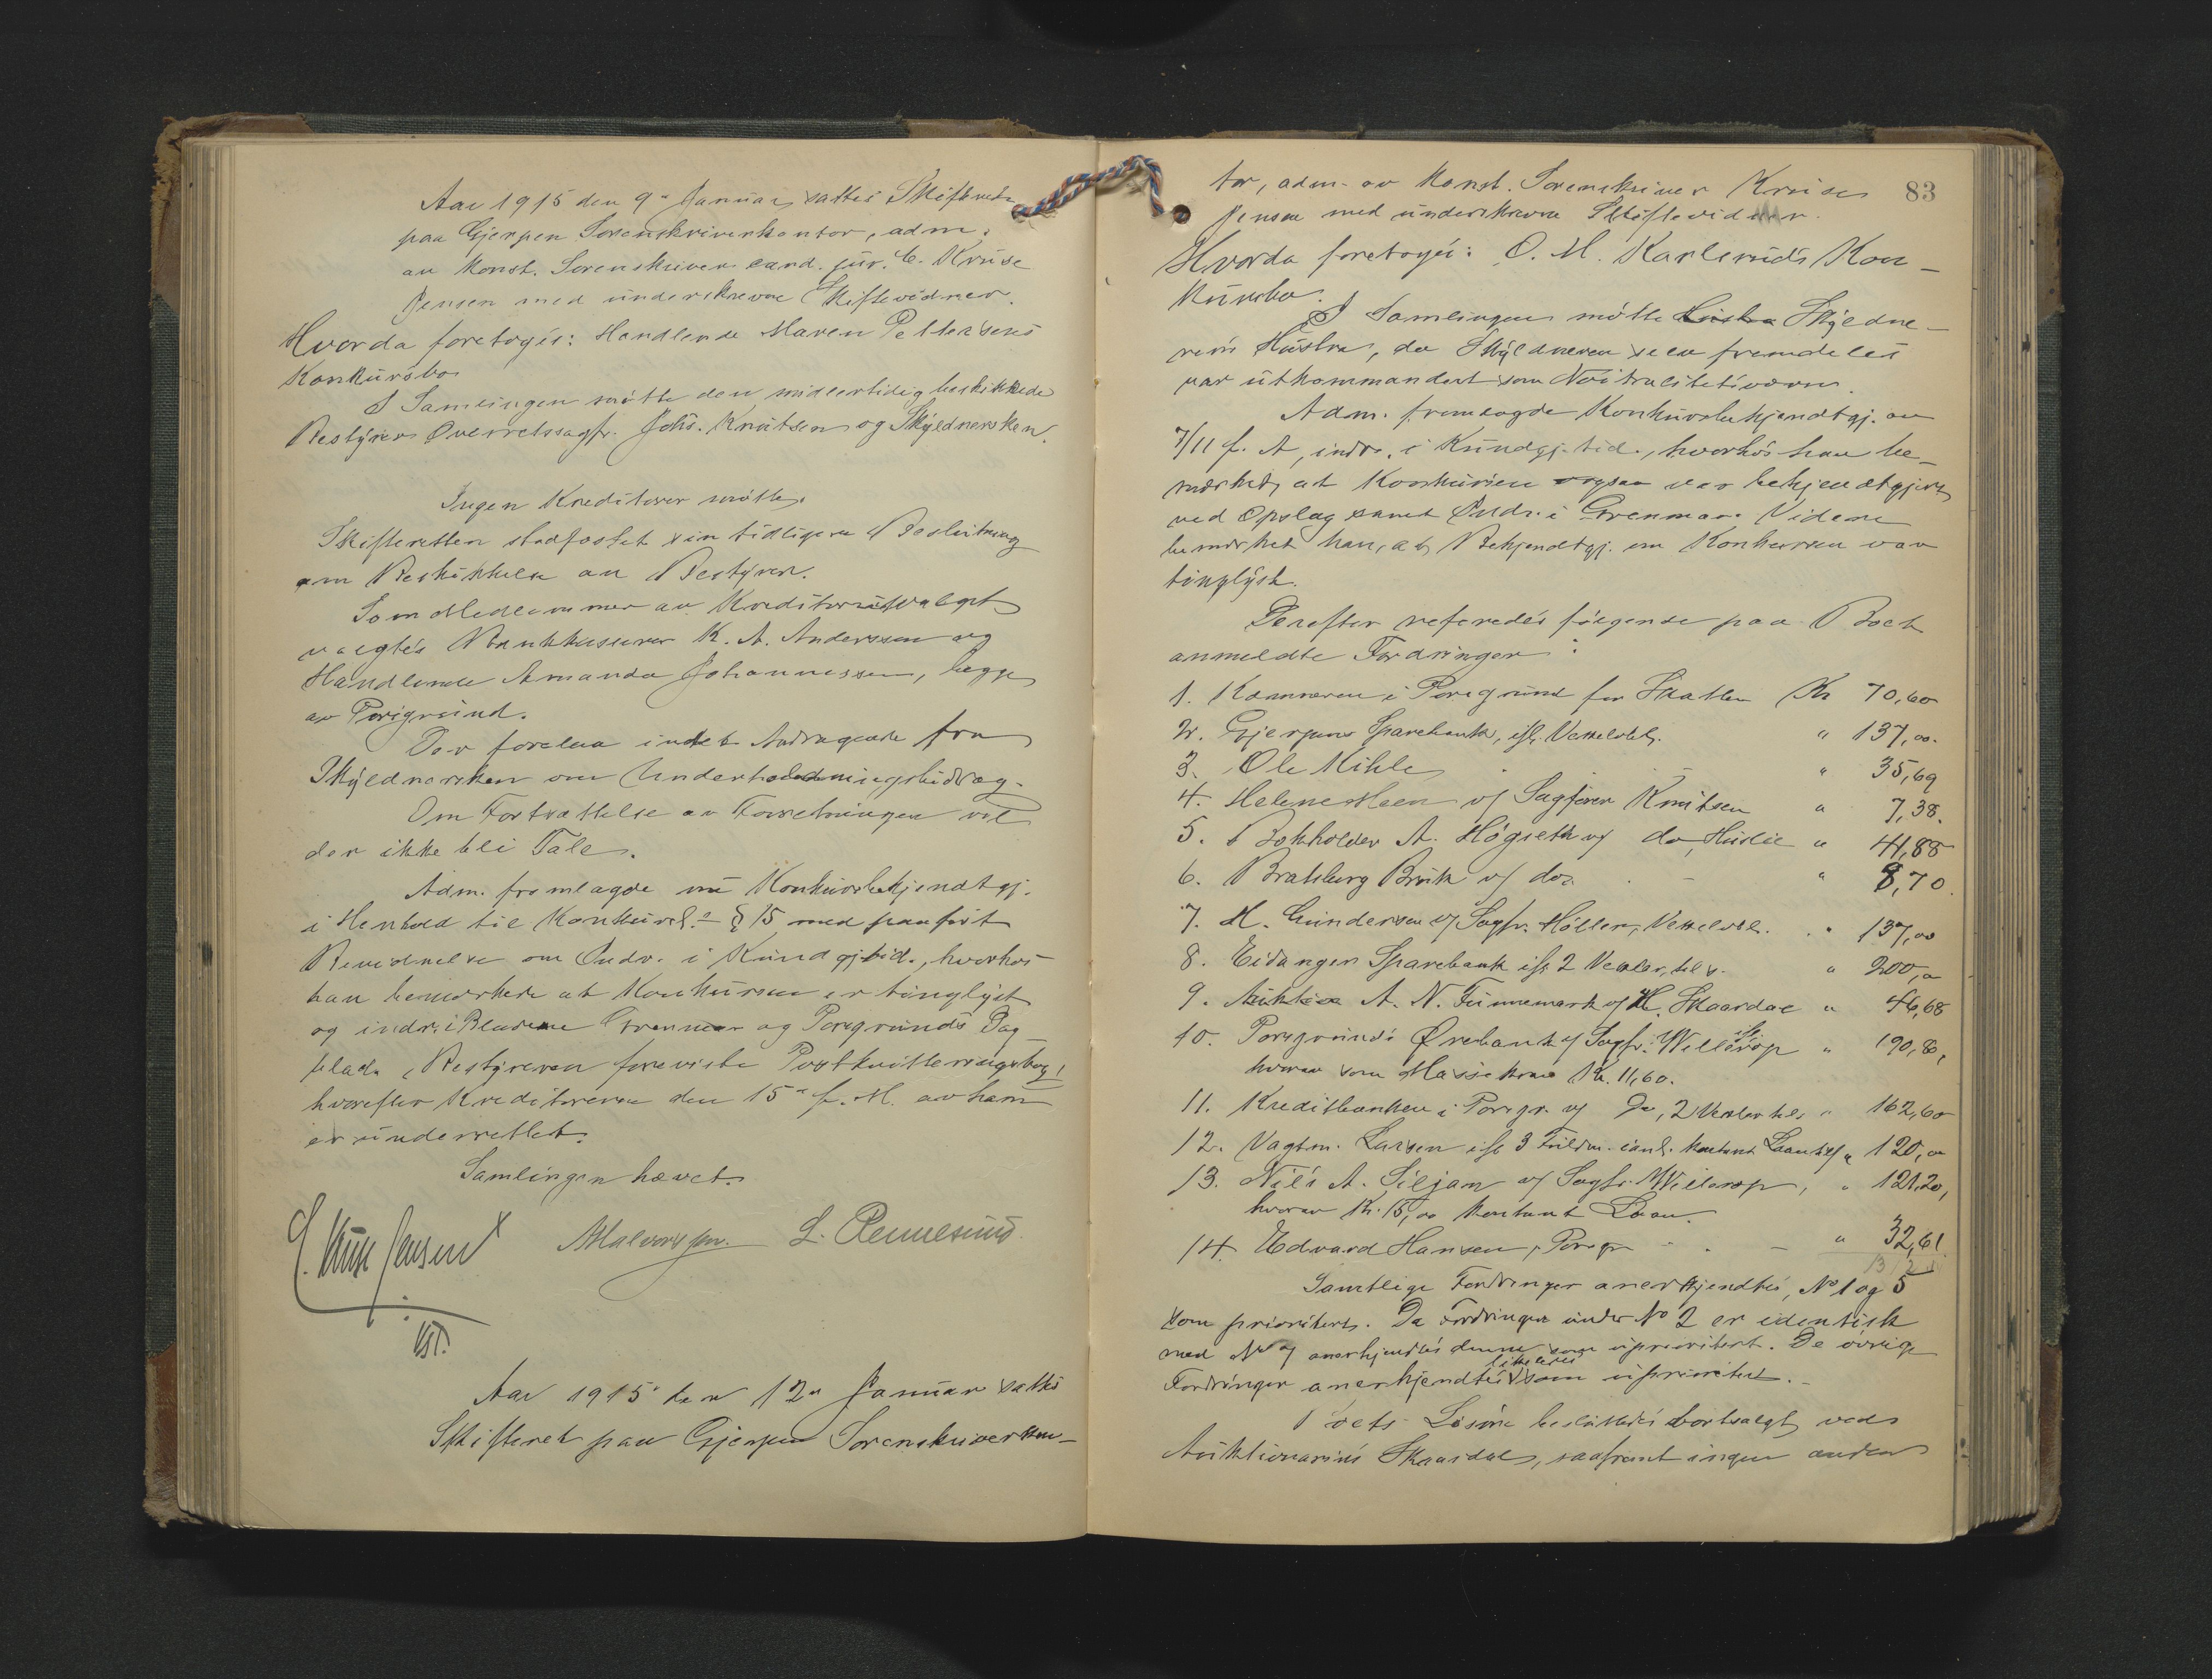 Aar 1915 den 9. Januar sattes Skifteret
paa Gjerpen Sorenskriverkontor, adm.
av Konst. Sorenskriver cand. jur. C. Kruse
Jensen med underskrevne Skiftevidner.
Hvorda foretoges: Handlende Maren Pettersens
Konkursbo
I Samlingen møtte den midlertidig beskikkede
Bestyrer Overretssagfr. Johs. Knutsen og Skyldnersken.
Ingen Kreditorer møtte.
Skifteretten stadfæstet sin tidligere Beslutning
om Beskikkelse av Bestyrer.
Som Medlemmer av Kreditorutvalget
valgtes Bankkasserer K. A. Anderssen og
Handlende Amanda Johannessen, begge
av Porsgrund.
Der forelaa intet Andragende fra
Skyldnersken om Underholdningsbidrag.
Om Fortsættelse av Forretningen vil
der ikke bli Tale.
Adm. fremlagde nu Konkursbekjendtgj.
i Henhold til Konkursl. § 15 med paaført
Bevidnelse om Indr. i Kundgj.tid., hvorhos
han bemerkede at Konkursen er tinglyst
og indr. i Bladene Grenmar og Porsgrunds Dag-
blad. Bestyreren foreviste Postkvitteringsbog,
hvorefter Kreditorerne den 15. f. M. av ham
er underrettet.
Samlingen hævet.
C. Kruse Jensen AHalvorsen. L. Rennesund.
kst.
Aar 1915 den 12. Januar sattes
Skifteret paa Gjerpen Sorenskriverkon-
83
tor, adm. av Konst. Sorenskriver Kruse
Jensen med underskrevne Skiftevidner.
Hvorda foretoges: O. M. Karlsruds Kon-
kursbo.
I Samlingen møtte Hustru Skyldne-
rens Hustru, da Skyldneren selv fremdeles
var utkommandert som Nøitralitetsværn.
Adm. fremlagde Konkursbekjendtgj. av
7/11 f. A, indr. i Kundgj.tid., hvorhos han be-
merket, at Konkursen ogsaa var bekjendtgjort
ved Opslag samt Indr. i Grenmar. Videre
bemerket han, at Bekjendtgj. om Konkursen var
tinglyst.
Derefter referedes følgende paa Boet
anmeldte Fordringer:
1. Kæmneren i Porsgrund for Skatter Kr 70,60
2. Gjerpens Sparebank, ifl. Vekselobl. " 137,00.
3. Ole Kihle " 35,69
4. Helene Steen v/ Sagfører Knutsen " 7,38.
5. Bokholder A. Høgseth v/ do, Husleie " 41,88
6. Bratsberg Bruk v/ do. " 8,70.
7. H. Gundersen v/ Sagfr. Møller, Vekselobl. " 137,00
8. Eidanger Sparebank ifl. 2 Veksler, tils. " 200,00
9. Auktion A. N. Funnemark v/ H. Skaardal " 46,68
10. Porsgrunds Ørebank v/ Sagfr. Willerup " 190,80,
hvorav som Massekrav Kr. 11,60.
11. Kreditbanken i Porsgr. v/ Do, 2 Veksler tils. " 162,60
12. Vagtm. Larsen ifl 3 Fuldm. kontant Laan " 120,00
13. Nils A. Siljan v/ Sagfr. Willerup, " 121,20,
hvorav Kr. 15,00 kontant Laan.
14. Edvard Hansen, Porsgr. " 32,61
Samtlige Fordringer anerkjendtes, No 1 og 5
som prioritert. Da Fordringen under No 2 er identisk
med No 7 anerkjendtes denne som uprioritert. De øvrige
Fordringer anerkjendtes likeledes som uprioritert.
Boets Løsøre besluttedes bortsolgt ved
Auktionarius Skaardal, saafremt ingen anden